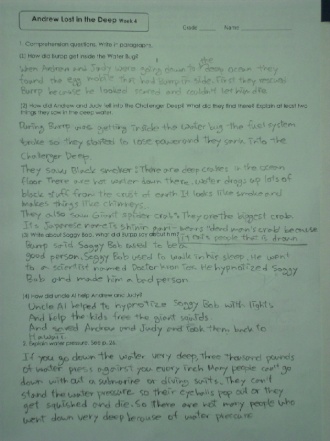 Andrew Lost in the Deep Week 4
Grade Name
1. Comprehension questions. Write in paragraphs.
(1) How did Burrp get inside the Water Bug?
When Andrew and Judy were going down to the deep ocean they
found the egg mobile that had Burrp in side. First they rescued
Burrp because he looked scared and couldn't let him die.
(2) How did Andrew and Judy fall into the Challenger Deep? What did they find there? Explain at least two
things they saw in the deep water.
During Burrp was getting inside the water bug the fuel system
broke so they started to lose power and they sank into the
Challenger Deep.
They saw Black smoker: There are deep cracks in the ocean
floor. There are hot water down there. Water drags up lots of
black stuff from the crust of earth. It looks like smoke and
makes things like chimneys.
They also saw Giant spider crab: They are the biggest crab.
Its Japanese name is shinin gani means dead men's crab because
it eats people that is drown
(3) Write about Soggy Bob. What did Burrp say about him?
Burrp said Soggy Bob used to be a
good person. Soggy Bob used to walk in his sleep. He went
to a scientist named Doctor Kron Tox. He hypnotized Soggy
Bob and made him a bad person.
(4) How did Uncle Al help Andrew and Judy?
Uncle Al helped to hypnotize Soggy Bob with lights
And help the kids free the giant squids.
And saved Andrew and Judy and took them back to
Hawaii.
2. Explain water pressure. See p. 26.
If you go down the water very deep, three thousand pounds
of water press against you every inch. Many people can't go
down without a submarine or diving suits. They can't
stand the water pressure so their eyeballs pop out or they
get squished and die. So there are not many people who
went down very deep because of water pressure